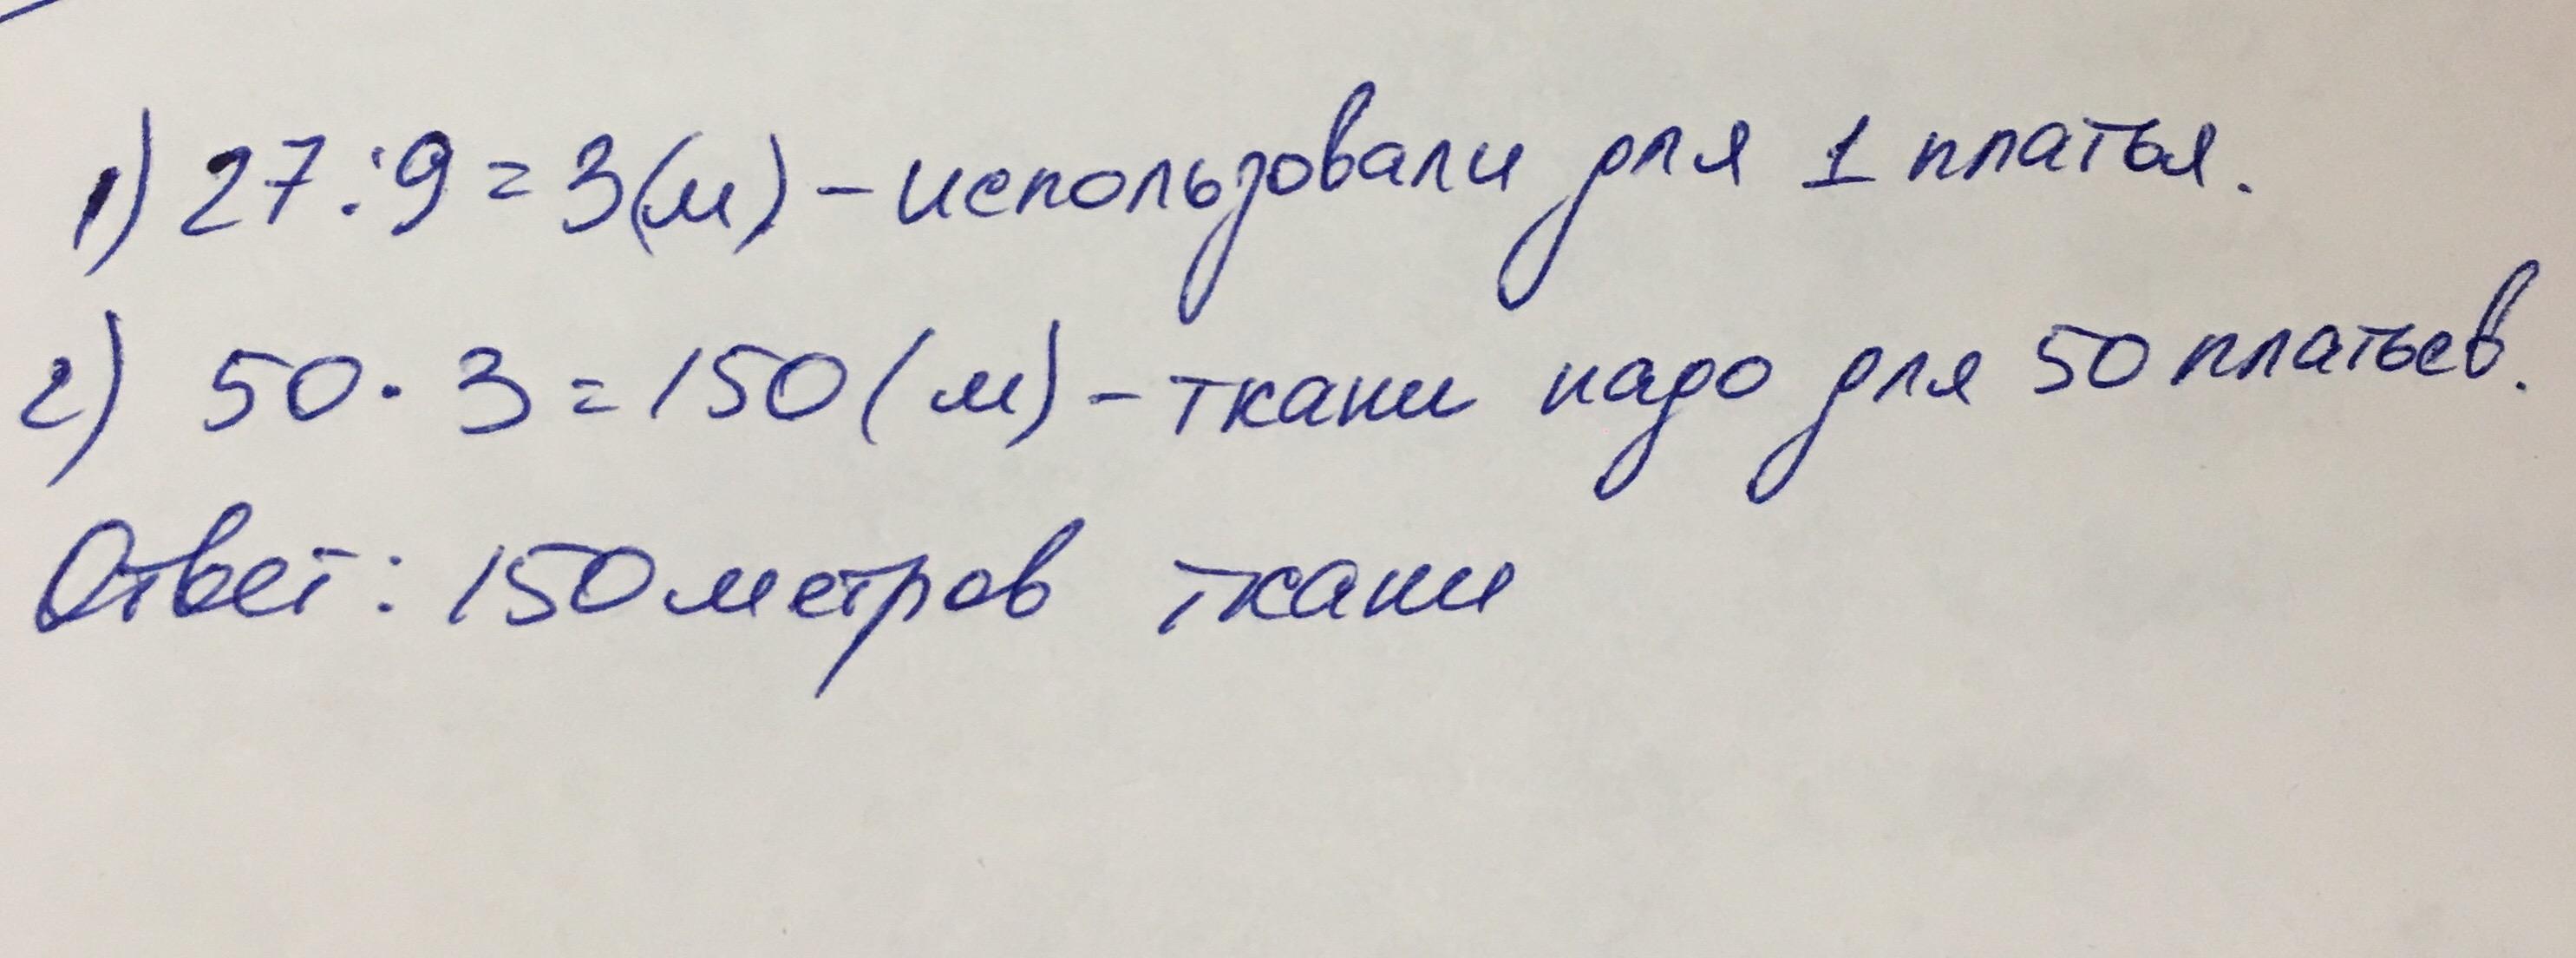 1) 27:9=3(м) - использовали для 1 платья.
2) 50·3=150(м) - ткани надо для 50 платьев.
Ответ: 150 метров ткани